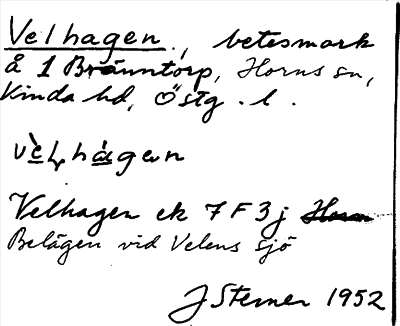 Velhagen, betesmark
å 1 Bränntorp, Horns sn,
Kinda hd, Östg. l.
Velhagen ek 7 F 3 j
Belägen vid Velens sjö
J Sterner 1952